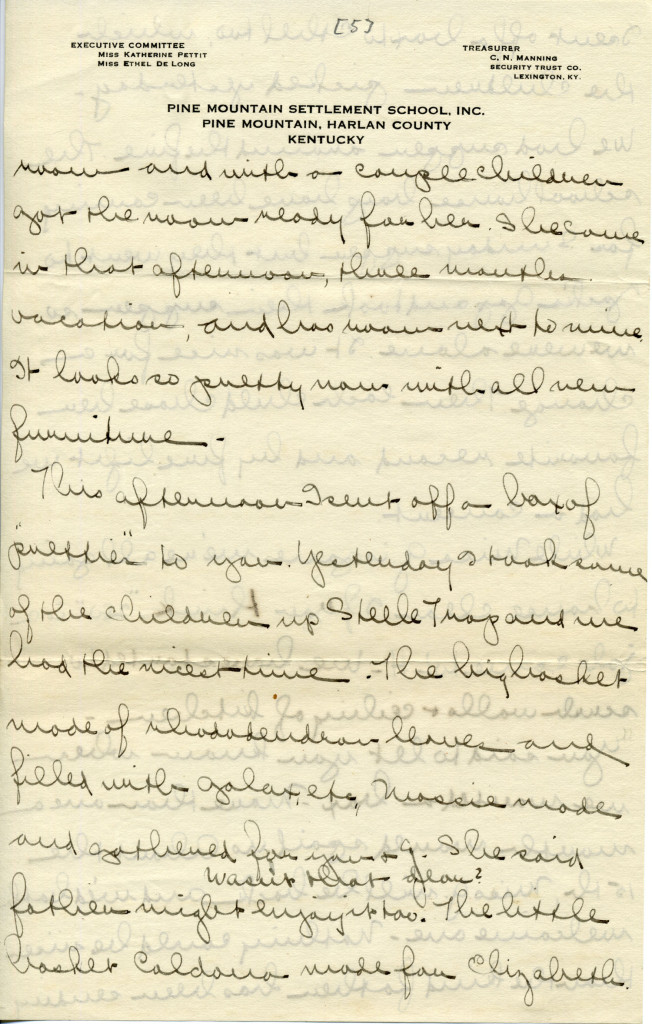 [5]
EXECUTIVE COMMITTEE
MISS KATHERINE PETTIT
MISS ETHEL DE LONG
TREASURER
C. N. MANNING
SECURITY TRUST CO.
LEXINGTON, KY.
PINE MOUNTAIN SETTLEMENT SCHOOL, INC.
PINE MOUNTAIN, HARLAN COUNTY
KENTUCKY
room and with a couple children
got the room ready for her. She came
in that afternoon, three months
vacation, and has room next to mine.
It looks so pretty now with all new
furniture -
This afternoon I sent off a box of
"pretties" to you. Yesterday I took some
of the children up Steele Trap and we
had the nicest time. The big basket
made of rhododendron leaves and
filled with galax, etc, Massie made
and gathered for you & J. She said
wasn't that dear?
father might enjoy it too. The little
basket Caldona made for Elizabeth.